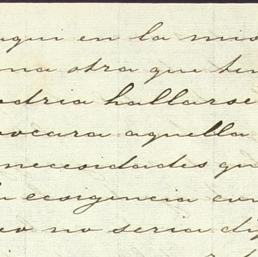 aqui en la mis
na otra que ten
odria hallarse
ocara aquella
necesidades qu
exigencia con
no seria dif